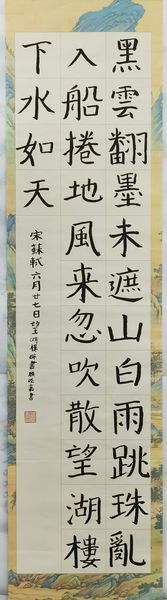 黑雲翻墨未遮山白雨跳珠亂
入船捲地風来忽吹散望湖樓
下水如天
宋蘇軾六月廿七日望湖樓醉書